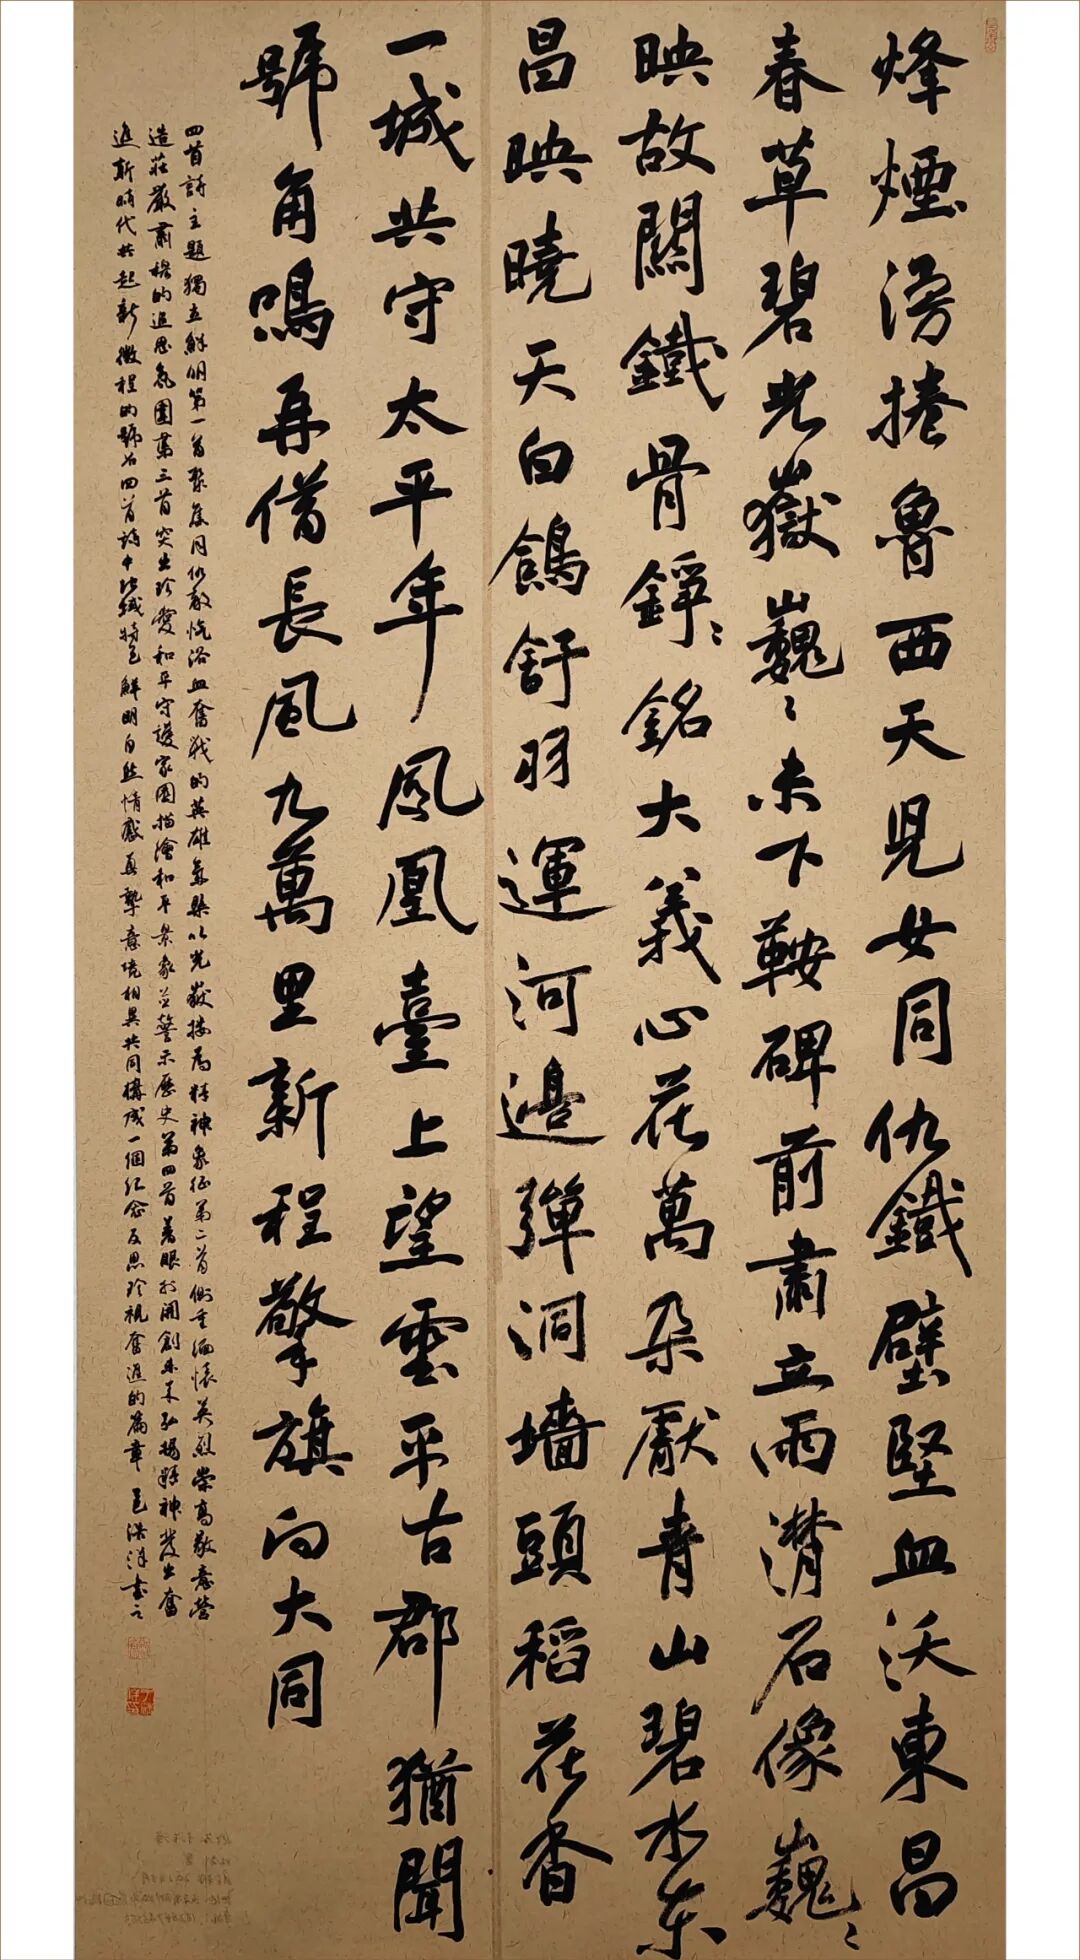 烽煙滂捲魯西天兒女同仇鐵壁堅血沃東昌
春草碧光嶽巍〻未下鞍碑前肅立雨潸石像巍〻
映故關鐵骨錚〻銘大義心花萬朵獻青山碧水東
昌映曉天白鴿舒羽運河邊彈洞墻頭稻花香
一城共守太平年鳳凰臺上望雲平古郡猶聞
號角鳴再借長風九萬里新程擎旗向大同
四首詩主題獨立鮮明第一首聚反同仇敵愾浴血奮戰的英雄氣槩以光嶽樓爲精神象征第二首側重緬懷英烈崇高敬意營
造莊嚴肅穆的追思氛圍第三首突出珍愛和平守護家園描繪和平景象並警示歷史第四首着眼於開創未來弘揚精神發出奮
進新時代共起新徵程的號召四首詩中地域特色鮮明自然情感真摯意境相異共同構成一個紀念反思珍視奮進的篇章 洪洋書之